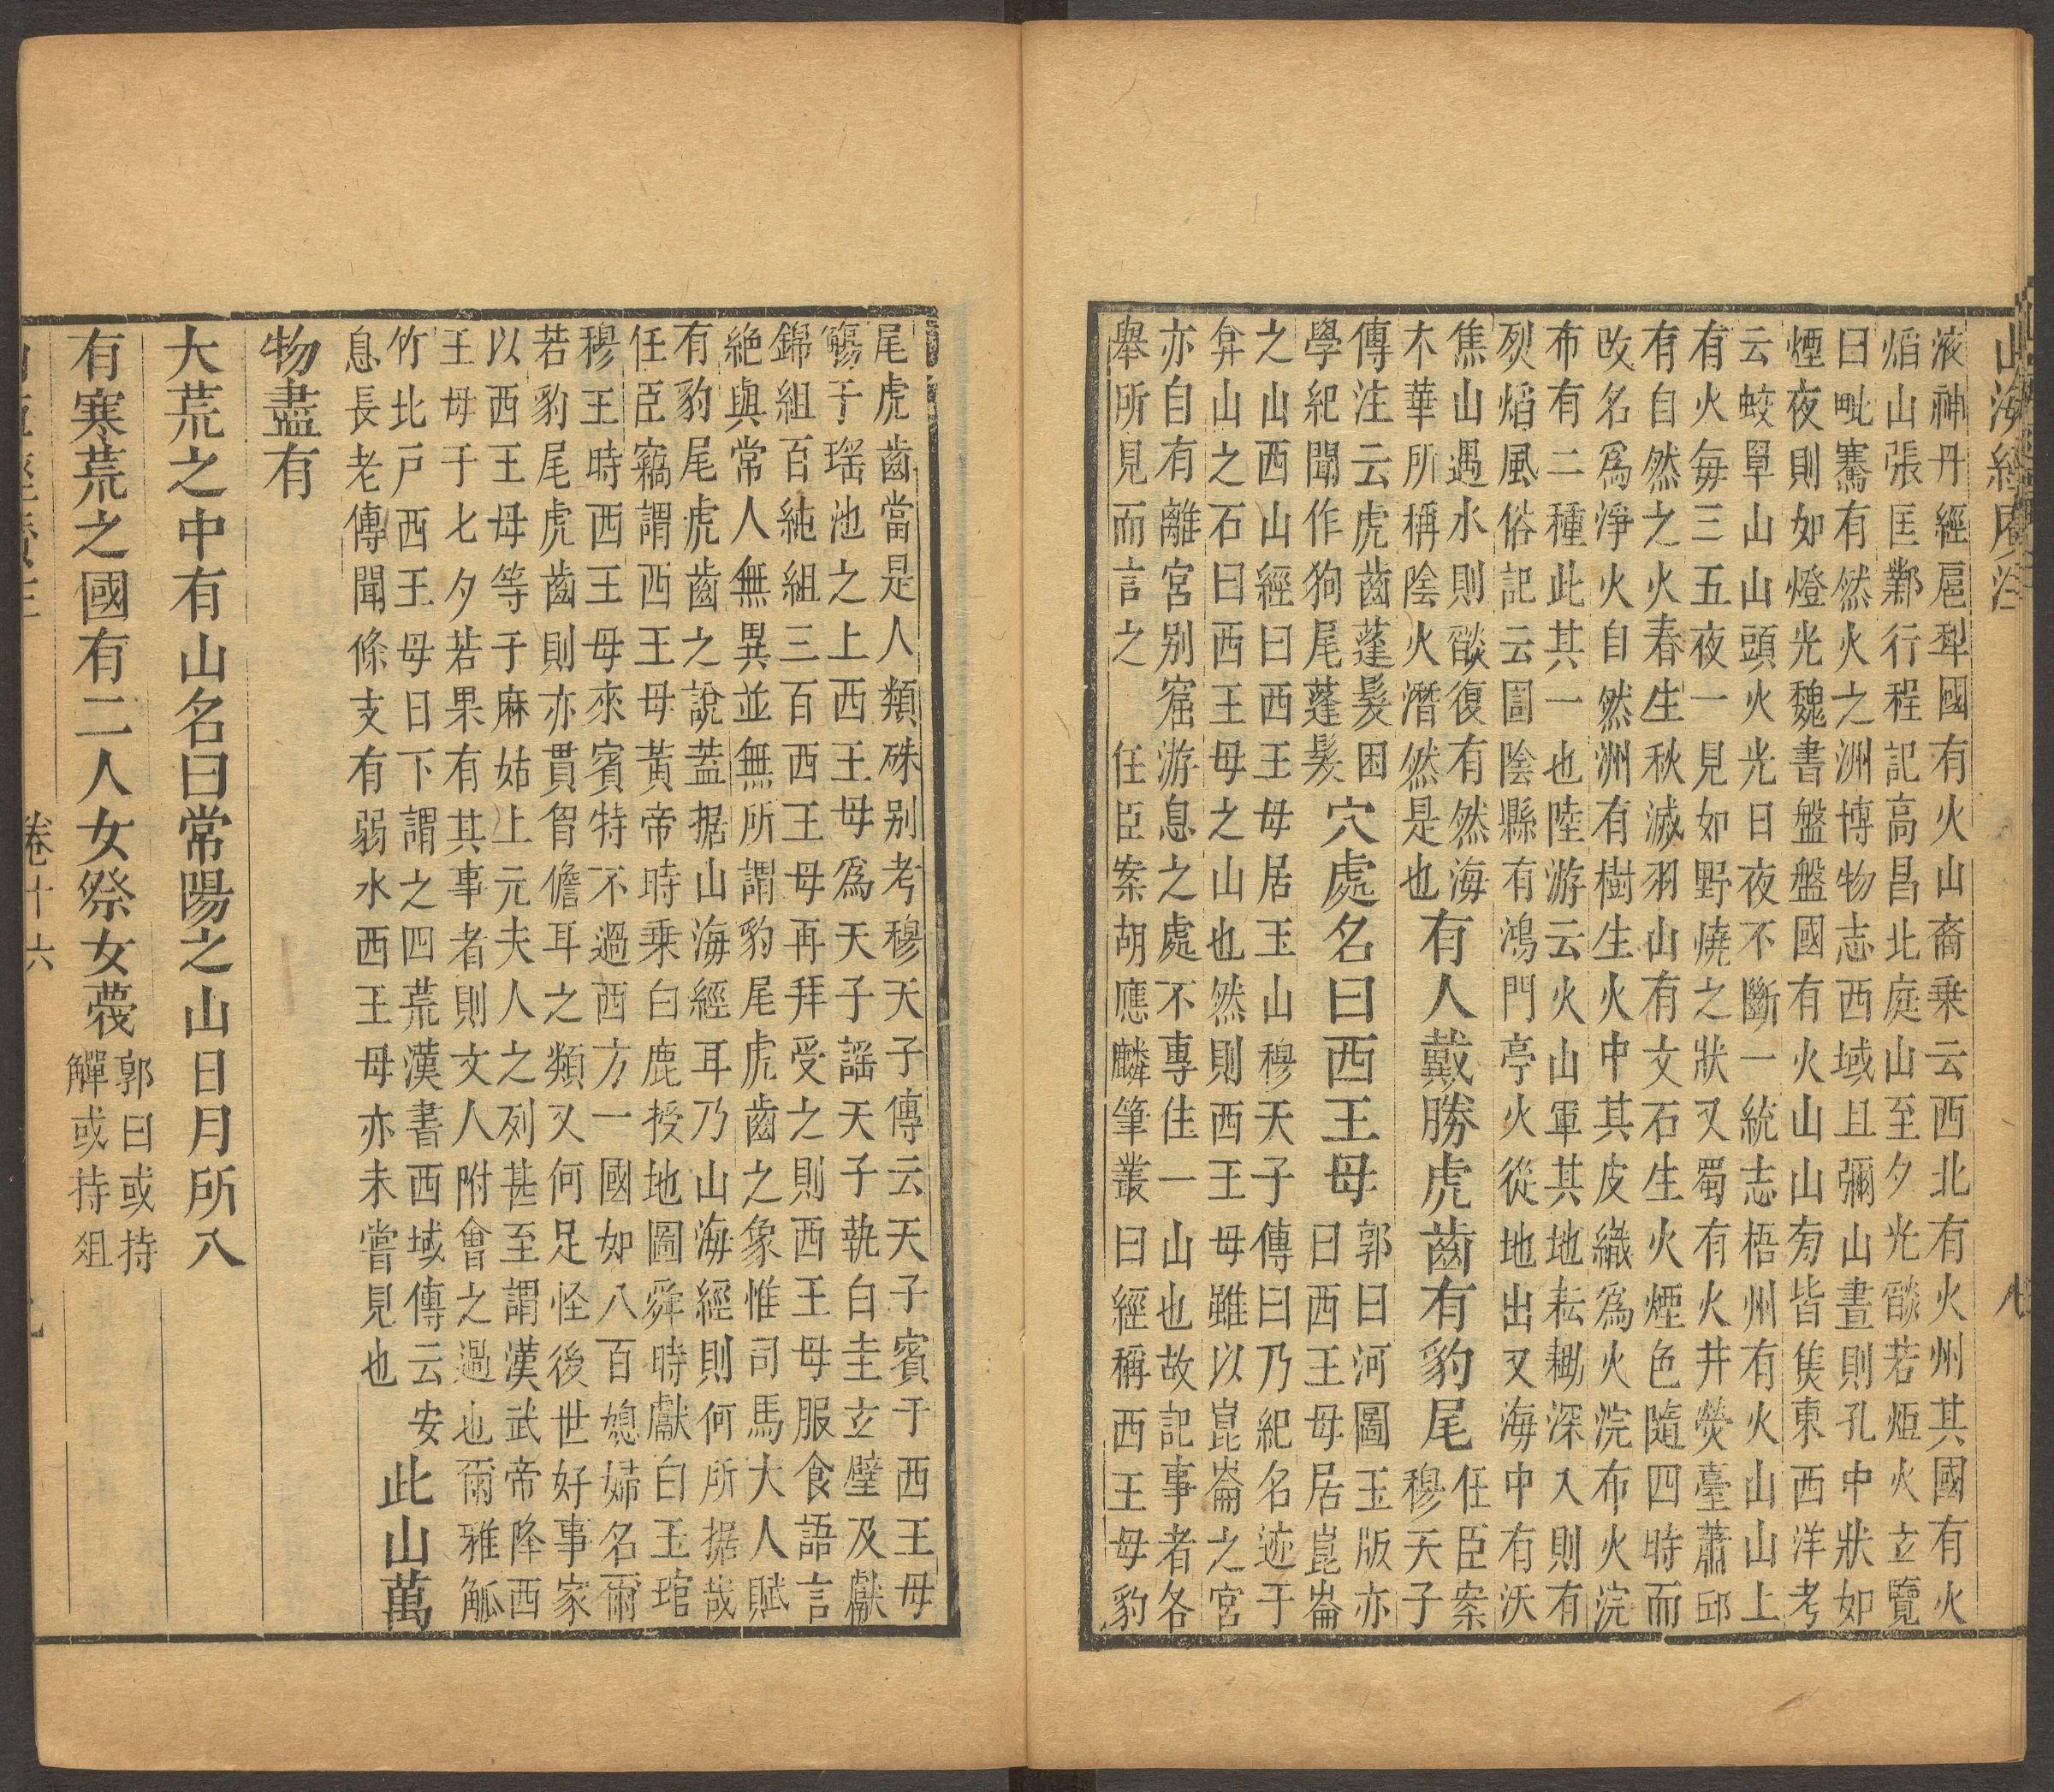 山海經廣注 八
液神丹經扈犁國有火山裔乗云西北有火州其國有火
焰山張匡鄴行程記高昌北庭山至夕光燄若炬火立覽
曰毗騫有然火之洲博物志西域且彌山晝則孔中狀如
煙夜則如燈光魏書盤盤國有火山山旁皆焦東西洋考
云蛟單山山頭火光日夜不斷一統志梧州有火山山上
有火每三五夜一見如野燒之狀又蜀有火井熒臺蕭邱
有自然之火春生秋滅羽山有文石生火煙色隨四時而
改名爲淨火自然洲有樹生火中其皮織爲火浣布火浣
布有二種此其一也陸游云火山軍其地耘耡深入則有
烈焰風俗記云圁陰縣有鴻門亭火從地出又海中有沃
焦山遇水則燄復有然海
木華所稱陰火潛然是也
有人戴勝虎齒有豹尾
任臣案
穆天子
傳注云虎齒蓬髮困
學紀聞作狗尾蓬髮
穴處名曰西王母
郭曰河圖玉版亦
曰西王母居崑崙
之山西山經曰西王母居玉山穆天子傳曰乃紀名迹于
弇山之石曰西王母之山也然則西王母雖以崑崙之宮
亦自有離宮别窟游息之處不專住一山也故記事者各
舉所見而言之 任臣案胡應麟筆叢曰經稱西王母豹
尾虎齒當是人類殊别考穆天子傳云天子賓于西王母
觴于瑤池之上西王母爲天子謠天子執白圭玄璧及獻
錦組百純組三百西王母再拜受之則西王母服食語言
絶與常人無異並無所謂豹尾虎齒之象惟司馬大人賦
有豹尾虎齒之說蓋据山海經耳乃山海經則何所据哉
任臣竊謂西王母黃帝時乗白鹿授地圖舜時獻白玉琯
穆王時西王母來賓特不過西方一國如八百媳婦名爾
若豹尾虎齒則亦貫胷儋耳之類又何足怪後世好事家
以西王母等于麻姑上元夫人之列甚至謂漢武帝降西
王母于七夕若果有其事者則文人附會之過也爾雅觚
竹北戸西王母日下謂之四荒漢書西域傳云安
息長老傳聞條支有弱水西王母亦未嘗見也
此山萬
物盡有
大荒之中有山名曰常陽之山日月所入
有寒荒之國有二人女祭女薎
郭曰或持
觶或持俎
卷十六